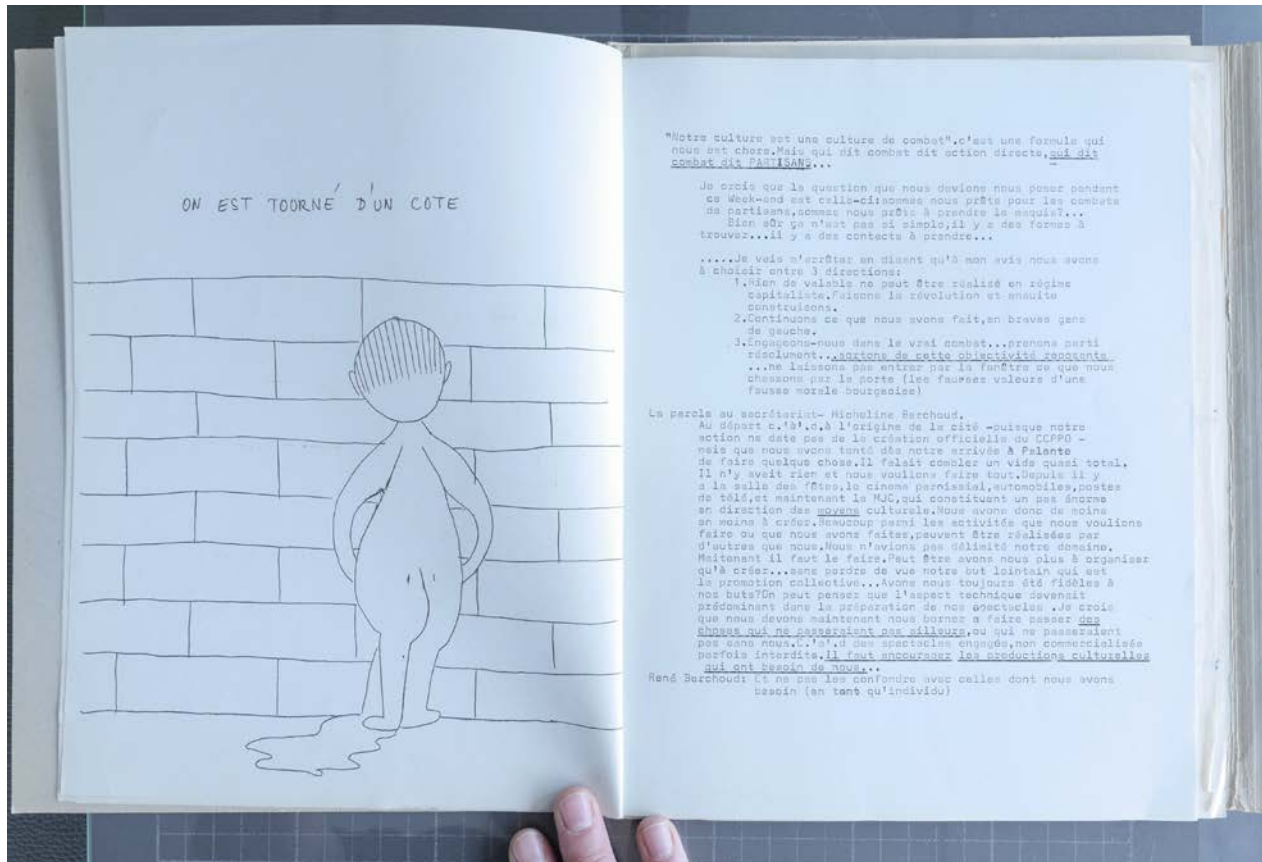 ON EST TOORNÉ D'UN COTE
"Notre culture est une culture de combat",c'est une formule qui
nous est chere.Mais qui dit combat dit action directe,qui dit
combat dit PARTISANS...
Je crois que la question que nous devions nous poser pendant
ce Week-end est celle-ci:sommes nous prêts pour les combats
de partisans,sommes nous prêts à prendre le maquis?...
Bien sûr ça n'est pas si simple,il y a des formes à
trouver...il y a des contacts à prendre...
.....Je vais m'arrêter en disant qu'à mon avis nous avons
à choisir entre 3 directions:
1.Rien de valable ne peut être réalisé en régime
capitaliste.Faisons la révolution et ensuite
construisons.
2.Continuons ce que nous avons fait,en braves gens
de gauche.
3.Engageons-nous dans le vrai combat...prenons parti
résolument...sortons de cette objectivité reposante
...ne laissons pas entrer par la fenêtre ce que nous
chassons par la porte (les fausses valeurs d'une
fausse morale bourgeoise)
La parole au secrétariat- Micheline Berchoud.
Au départ c.'à'.d.à l'origine de la cité -puisque notre
action ne date pas de la création officielle du CCPPO -
mais que nous avons tenté dès notre arrivée à Palente
de faire quelque chose.Il falait combler un vide quasi total.
Il n'y avait rien et nous voulions faire tout.Depuis il y
a la salle des fêtes,le cinema paroissial,automobiles,postes
de télé,et maintenant la MJC,qui constituent un pas énorme
en direction des moyens culturels.Nous avons donc de moins
en moins à créer.Beaucoup parmi les activités que nous voulions
faire ou que nous avons faites,peuvent être réalisées par
d'autres que nous.Nous n'avions pas délimité notre domaine.
Maitenant il faut le faire.Peut être avons nous plus à organiser
qu'à créer...sans perdre de vue notre but lointain qui est
la promotion collective...Avons nous toujours été fidèles à
nos buts?On peut penser que l'aspect technique devenait
prédominant dans la préparation de nos spectacles .Je crois
que nous devons maintenant nous borner a faire passer des
choses qui ne passeraient pas ailleurs,ou qui ne passeraient
pas sans nous.C.'a'.d des spectacles engagés,non commercialisés
parfois interdits.Il faut encourager les productions culturelles
qui ont besoin de nous...
René Berchoud: Et ne pas les confondre avec celles dont nous avons
besoin (en tant qu'individu)